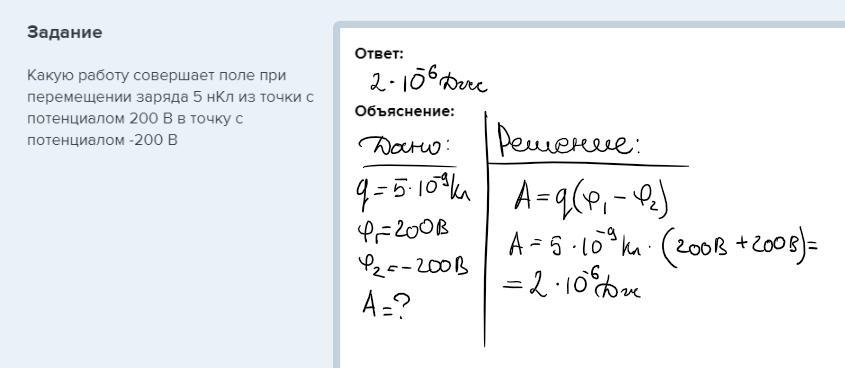 Задание
Какую работу совершает поле при
перемещении заряда 5 нКл из точки с
потенциалом 200 В в точку с
потенциалом -200 В
Ответ:
2 · 10⁻⁶ Дж
Объяснение:
Дано:
q = 5 · 10⁻⁹ Кл
φ₁ = 200 В
φ₂ = - 200 В
A = ?
Решение:
A = q(φ₁ - φ₂)
A = 5 · 10⁻⁹ Кл · (200 В + 200 В) =
= 2 · 10⁻⁶ Дж